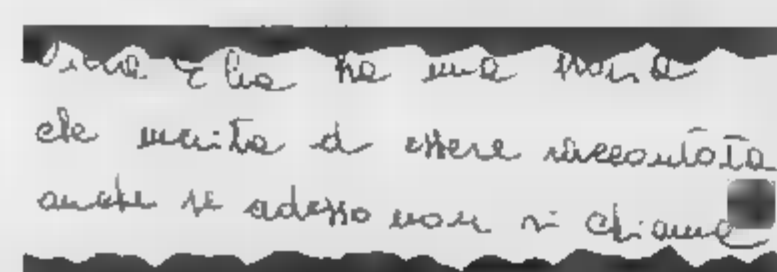 ha una storia
che merita d essere raccontata
anche se adesso non si chiama